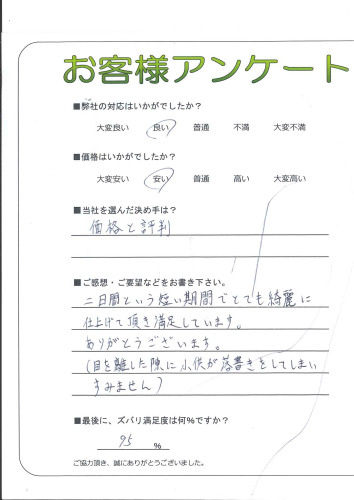 お客様アンケート
■弊社の対応はいかがでしたか？
大変良い 良い 普通 不満 大変不満
■価格はいかがでしたか？
大変安い 安い 普通 高い 大変高い
■当社を選んだ決め手は？
価格と評判
■ご感想・ご要望などをお書き下さい。
二日間という短い期間でとても綺麗に
仕上げて頂き満足しています。
ありがとうございます。
(目を離した隙に小供が落書きをしてしまい
すみません)
■最後に、ズバリ満足度は何%ですか？
95 %
ご協力頂き、誠にありがとうございました。